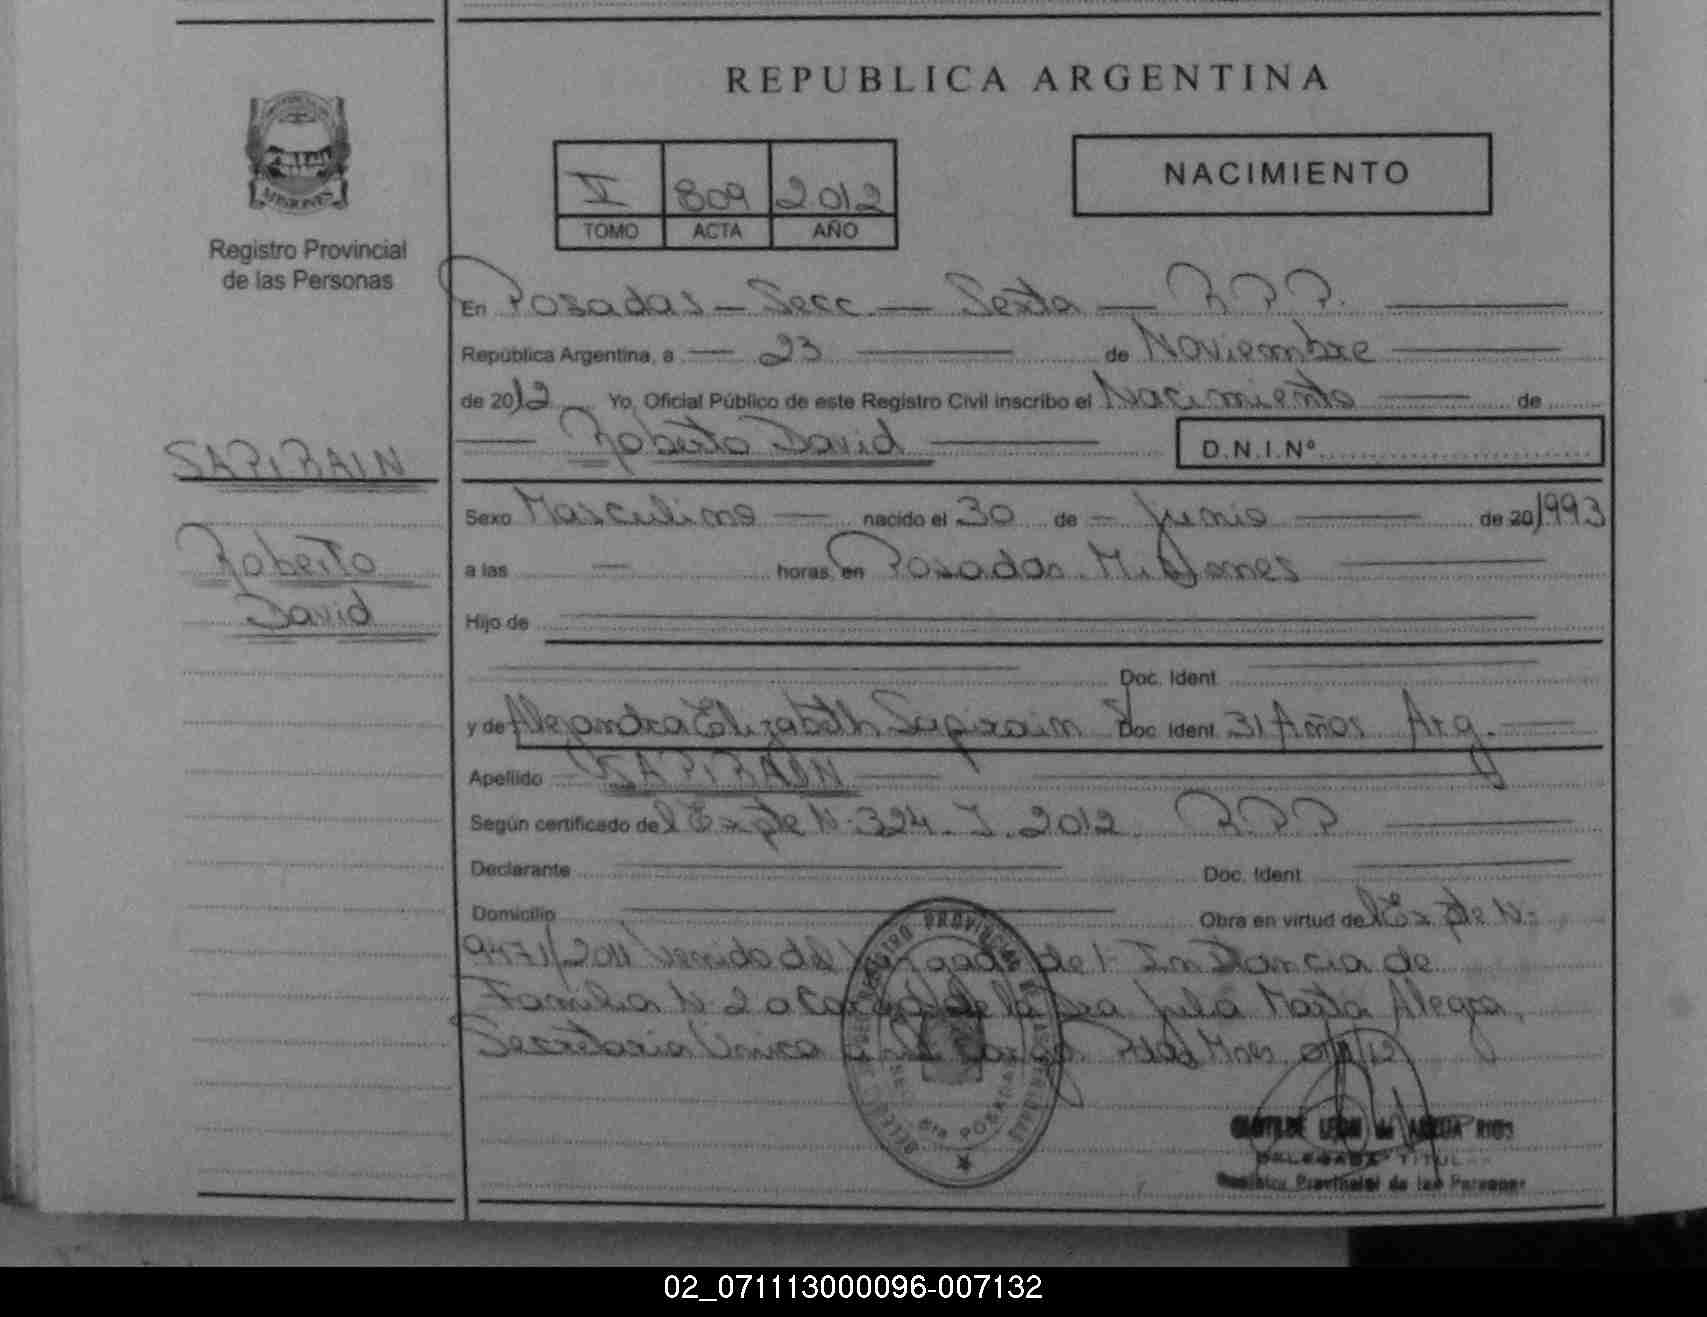 REPUBLICA ARGENTINA
MISIONES
Registro Provincial
de las Personas
V 809 2012
TOMO ACTA AÑO
NACIMIENTO
En Posadas - Secc - Sexta - R.P.P.
República Argentina, a 23 de Noviembre
de 2012 Yo, Oficial Público de este Registro Civil inscribo el Nacimiento de
Roberto David
D.N.I.Nº
SAPIRAIN
Roberto
David
Sexo Masculino nacido el 30 de Junio de 20 1993
a las horas, en Posadas Misiones
Hijo de
Doc. Ident.
y de Alejandra Elizabeth Sapirain Doc. Ident. 31 Años Arg.
Apellido SAPIRAIN
Según certificado del Expte N. 324. 2012 R.P.P
Declarante Doc. Ident.
Domicilio Obra en virtud del Expte N:
9471/2011 venido del Juzgado de 1 Instancia de
Familia N. 2 a Cargo de la Dra Julia Marta Alegre,
Secretaria Unica Pdas Mnes
REGISTRO PROVINCIAL DE LAS PERSONAS
POSADAS
CLOTILDE LEON de RIOS
DELEGADA TITULAR
Registro Provincial de las Personas
02_071113000096-007132